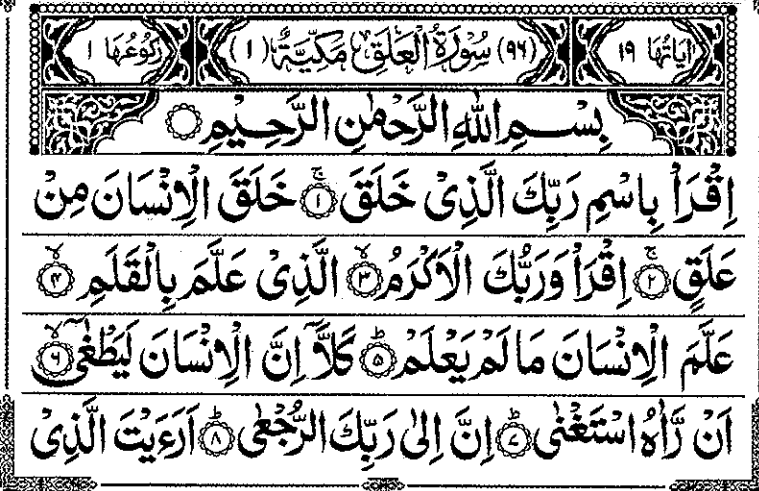 اٰیَاتُهَا ۱۹ (۹۶) سُوْرَةُ الْعَلَقِ مَكِّيَّةٌ (۱) رُكُوْعُهَا ۱
بِسْمِ اللّٰهِ الرَّحْمٰنِ الرَّحِيْمِ ۝
اِقْرَاْ بِاسْمِ رَبِّكَ الَّذِىْ خَلَقَ ۚ‏﴿۱﴾ خَلَقَ الْاِنْسَانَ مِنْ
عَلَقٍ ۚ‏﴿۲﴾ اِقْرَاْ وَرَبُّكَ الْاَكْرَمُ ۙ‏﴿۳﴾ الَّذِىْ عَلَّمَ بِالْقَلَمِ ۙ‏﴿۴﴾
عَلَّمَ الْاِنْسَانَ مَا لَمْ يَعْلَمْ ؕ‏﴿۵﴾ كَلَّاۤ اِنَّ الْاِنْسَانَ لَيَطْغٰٓى ۙ‏﴿۶﴾
اَنْ رَّاٰهُ اسْتَغْنٰى ؕ‏﴿۷﴾ اِنَّ اِلٰى رَبِّكَ الرُّجْعٰى ؕ‏﴿۸﴾ اَرَءَيْتَ الَّذِىْ